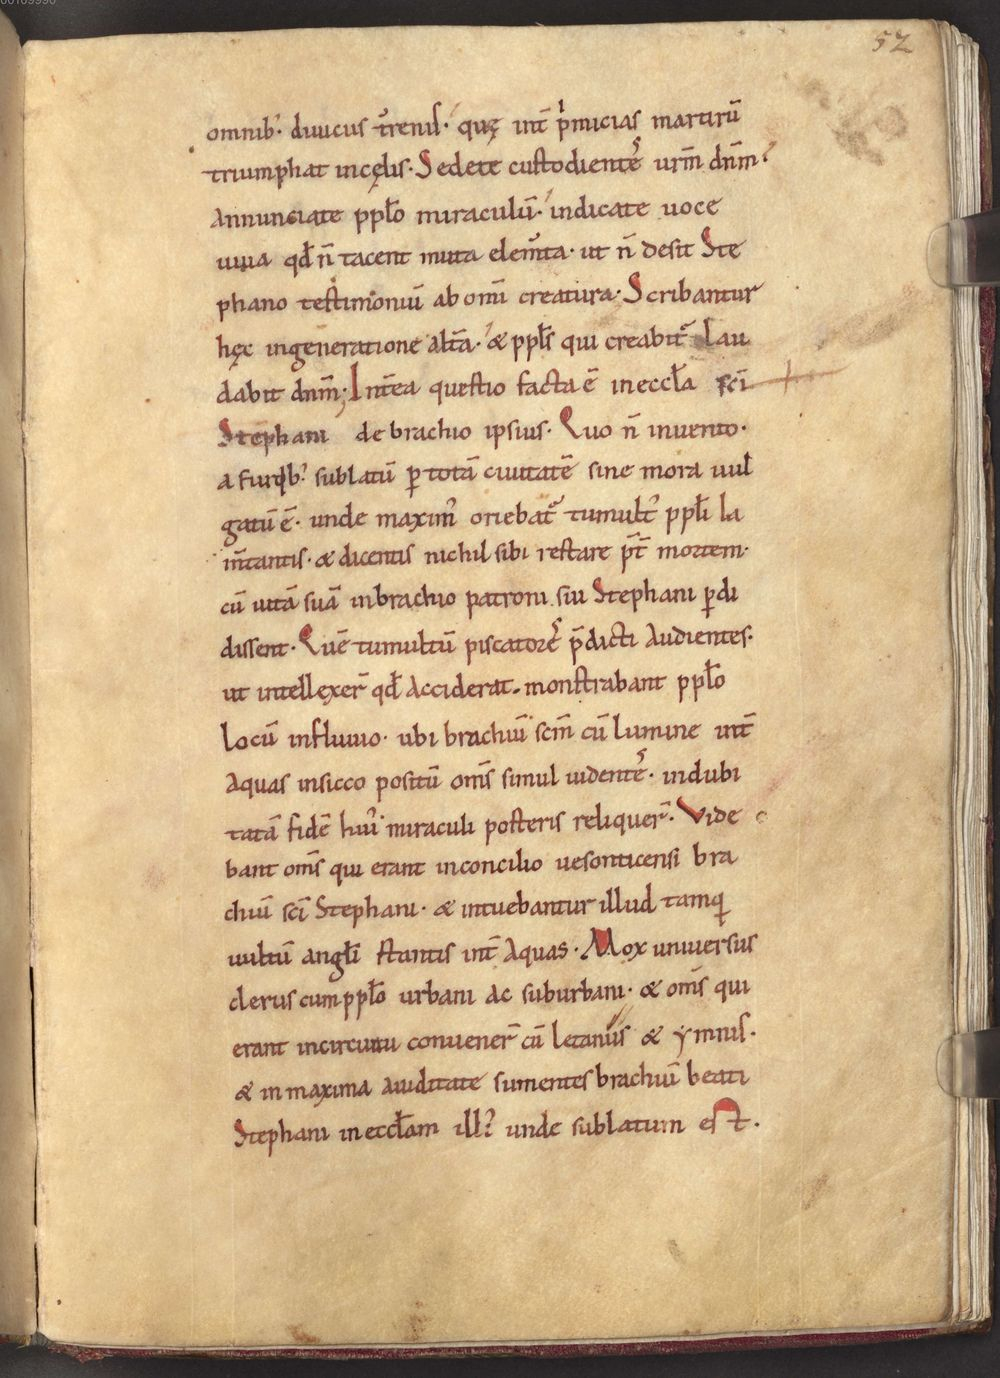 00109990
52
omnib᷒· diuicus t̄renis· quę int̄ pͥmicias martirū
triumphat incęlis· Sedete custodientes urm̄ dn̄m·
Annunciate ppl̄o miraculū· indicate uoce
uiua qd̄ n̄ tacent muta elem̄ta· ut n̄ desit Ste
phano testimoniū ab omī creatura· Scribantur
hęc ingeneratione altā· & ppl̄s qui creabit᷑ Lau
dabit dn̄m; Int̄ea questio facta ē ineccl̄a sc̄i
Stephani de brachio ipsius· Quo n̄ inuento·
a furqb᷒ sublatū ꝑ totā ciuitatē sine mora uul
gatū ē· unde maxim᷒ oriebat᷑ tumult᷒ ppl̄i la
m̄tantis· & dicentis nichil sibi restare p̄t mortem·
cū uitā suā inbrachio patroni sui Stephani ꝑdi
dissent· Quē tumultū piscatores p̄dicti Audientes·
ut intellexer̄ qd̄ Acciderat· monstrabant ppl̄o
Locū influuio· ubi brachiū sc̄m cū Lumine int̄
Aquas insicco positū om̄s simul uidentes· indubi
tatā fidē hui᷒ miraculi posteris reliquer̄· Vide
bant om̄s qui erant inconcilio uesonticensi bra
chiū sc̄i Stephani· & intuebantur illud tamqͥ
uultū angl̄i stantis int̄ Aquas· Mox uniuersus
clerus cum ppl̄o urbani Ac suburbani· & om̄s qui
erant incircuitu conuener̄ cū Letaniis & ymnis·
& in maxima auiditate sumentes brachiū beati
Stephani in eccl̄am ill᷒ unde sublatum est·